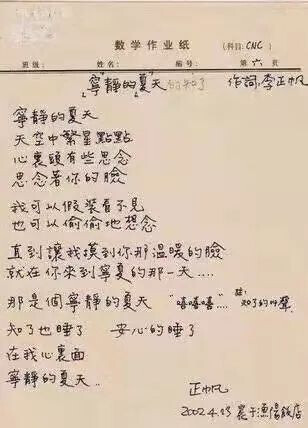 数学作业纸
(科目: CNC)
班级: 姓名: 编号: 第六页
「寧靜的夏」天的知了 作詞: 李正帆
寧靜的夏天
天空中繁星點點
心裏頭有些思念
思念著你的臉
我可以假裝看不見
也可以偷偷地想念
直到讓我摸到你那溫暖的臉
就在你來到寧夏的那一天....
那是個寧靜的夏天 "嘻嘻嘻..." 註: 知了的叫聲
知了也睡了 安心的睡了
在我心裏面
寧靜的夏天..
正帆
2002.4.13 寫于漁陽飯店